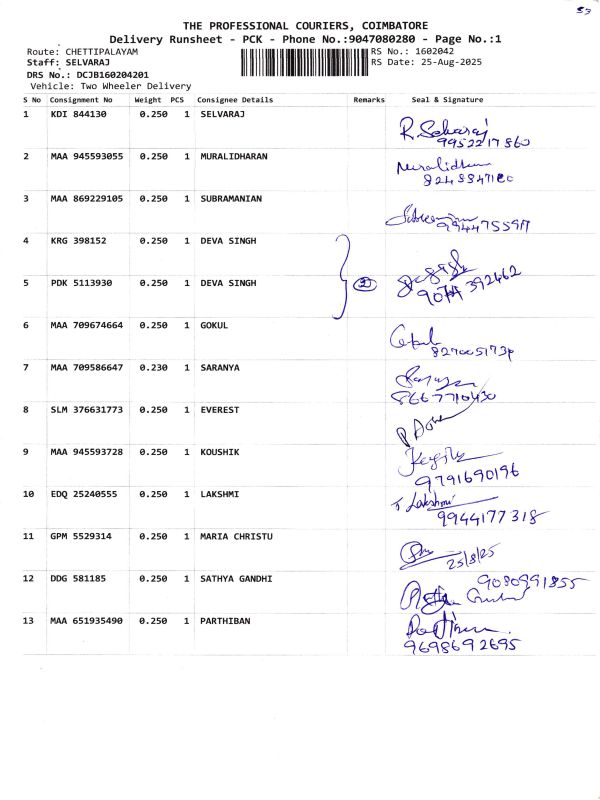 53
THE PROFESSIONAL COURIERS, COIMBATORE
Delivery Runsheet - PCK - Phone No.:9047080280 - Page No.:1
Route: CHETTIPALAYAM RS No.: 1602042
Staff: SELVARAJ RS Date: 25-Aug-2025
DRS No.: DCJB160204201
Vehicle: Two Wheeler Delivery
S No Consignment No Weight PCS Consignee Details Remarks Seal & Signature
1 KDI 844130 0.250 1 SELVARAJ
9952217860
2 MAA 945593055 0.250 1 MURALIDHARAN Muralidharan
3 MAA 869229105 0.250 1 SUBRAMANIAN
4 KRG 398152 0.250 1 DEVA SINGH
5 PDK 5113930 0.250 1 DEVA SINGH 2
6 MAA 709674664 0.250 1 GOKUL Gokul
7 MAA 709586647 0.230 1 SARANYA
8667710430
8 SLM 376631773 0.250 1 EVEREST
9 MAA 945593728 0.250 1 KOUSHIK
9791690196
10 EDQ 25240555 0.250 1 LAKSHMI Lakshmi
9944177318
11 GPM 5529314 0.250 1 MARIA CHRISTU
25/8/25
12 DDG 581185 0.250 1 SATHYA GANDHI 9080991855
13 MAA 651935490 0.250 1 PARTHIBAN
9698692695